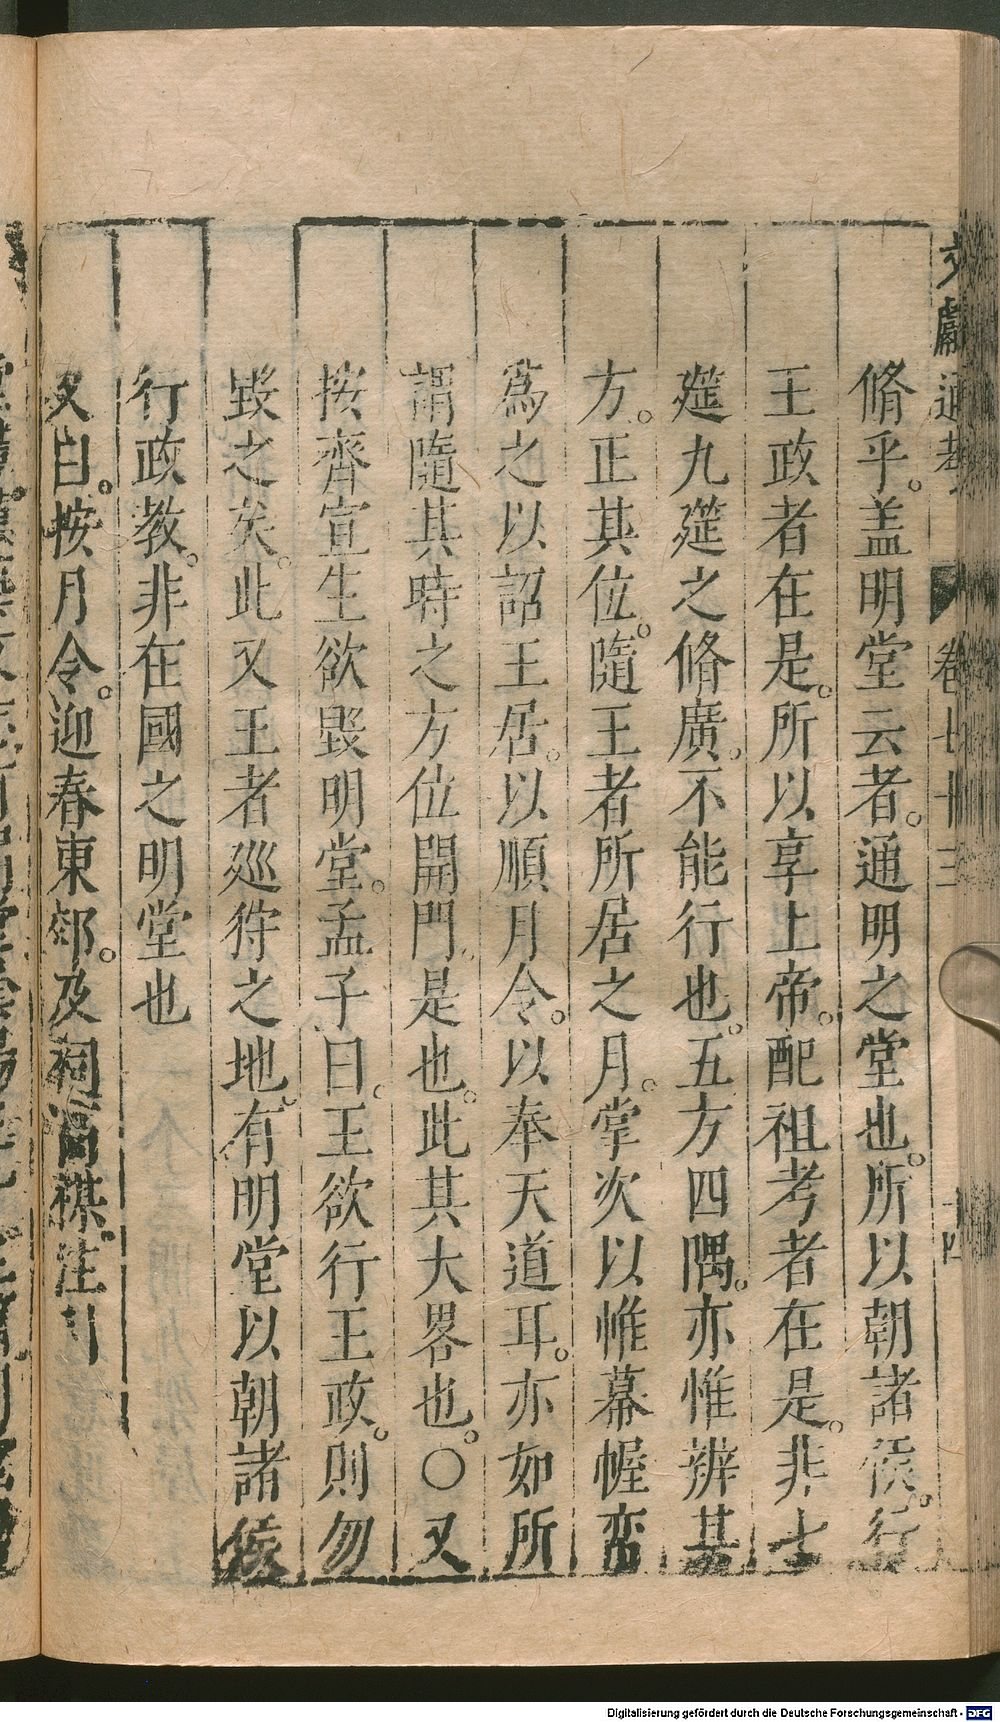 文獻通考 卷七十三 十四
脩乎。盖明堂云者。通明之堂也。所以朝諸侯。行
王政者在是。所以享上帝。配祖考者在是。非七
筵九筵之脩廣。不能行也。五方四隅。亦惟辨其
方。正其位。隨王者所居之月。掌次以帷幕幄帟
為之以詔王居。以順月令。以奉天道耳。亦如所
謂隨其時之方位開門。是也。此其大畧也。○又
按齊宣王欲毀明堂。孟子曰。王欲行王政。則勿
毀之矣。此又王者廵狩之地。有明堂以朝諸侯
行政教。非在國之明堂也
又曰。按月令。迎春東郊。及祠高禖。注
Digitalisierung gefördert durch die Deutsche Forschungsgemeinschaft - DFG